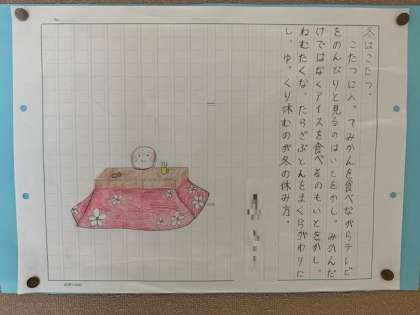 冬はこたつ。
こたつに入ってみかんを食べながらテレビ
をのんびりと見るのはいとをかし。みかんだ
けではなくアイスを食べるのもいとをかし。
ねむたくなったらざぶとんをまくらがわりに
し、ゆっくり休むのが冬の休み方。